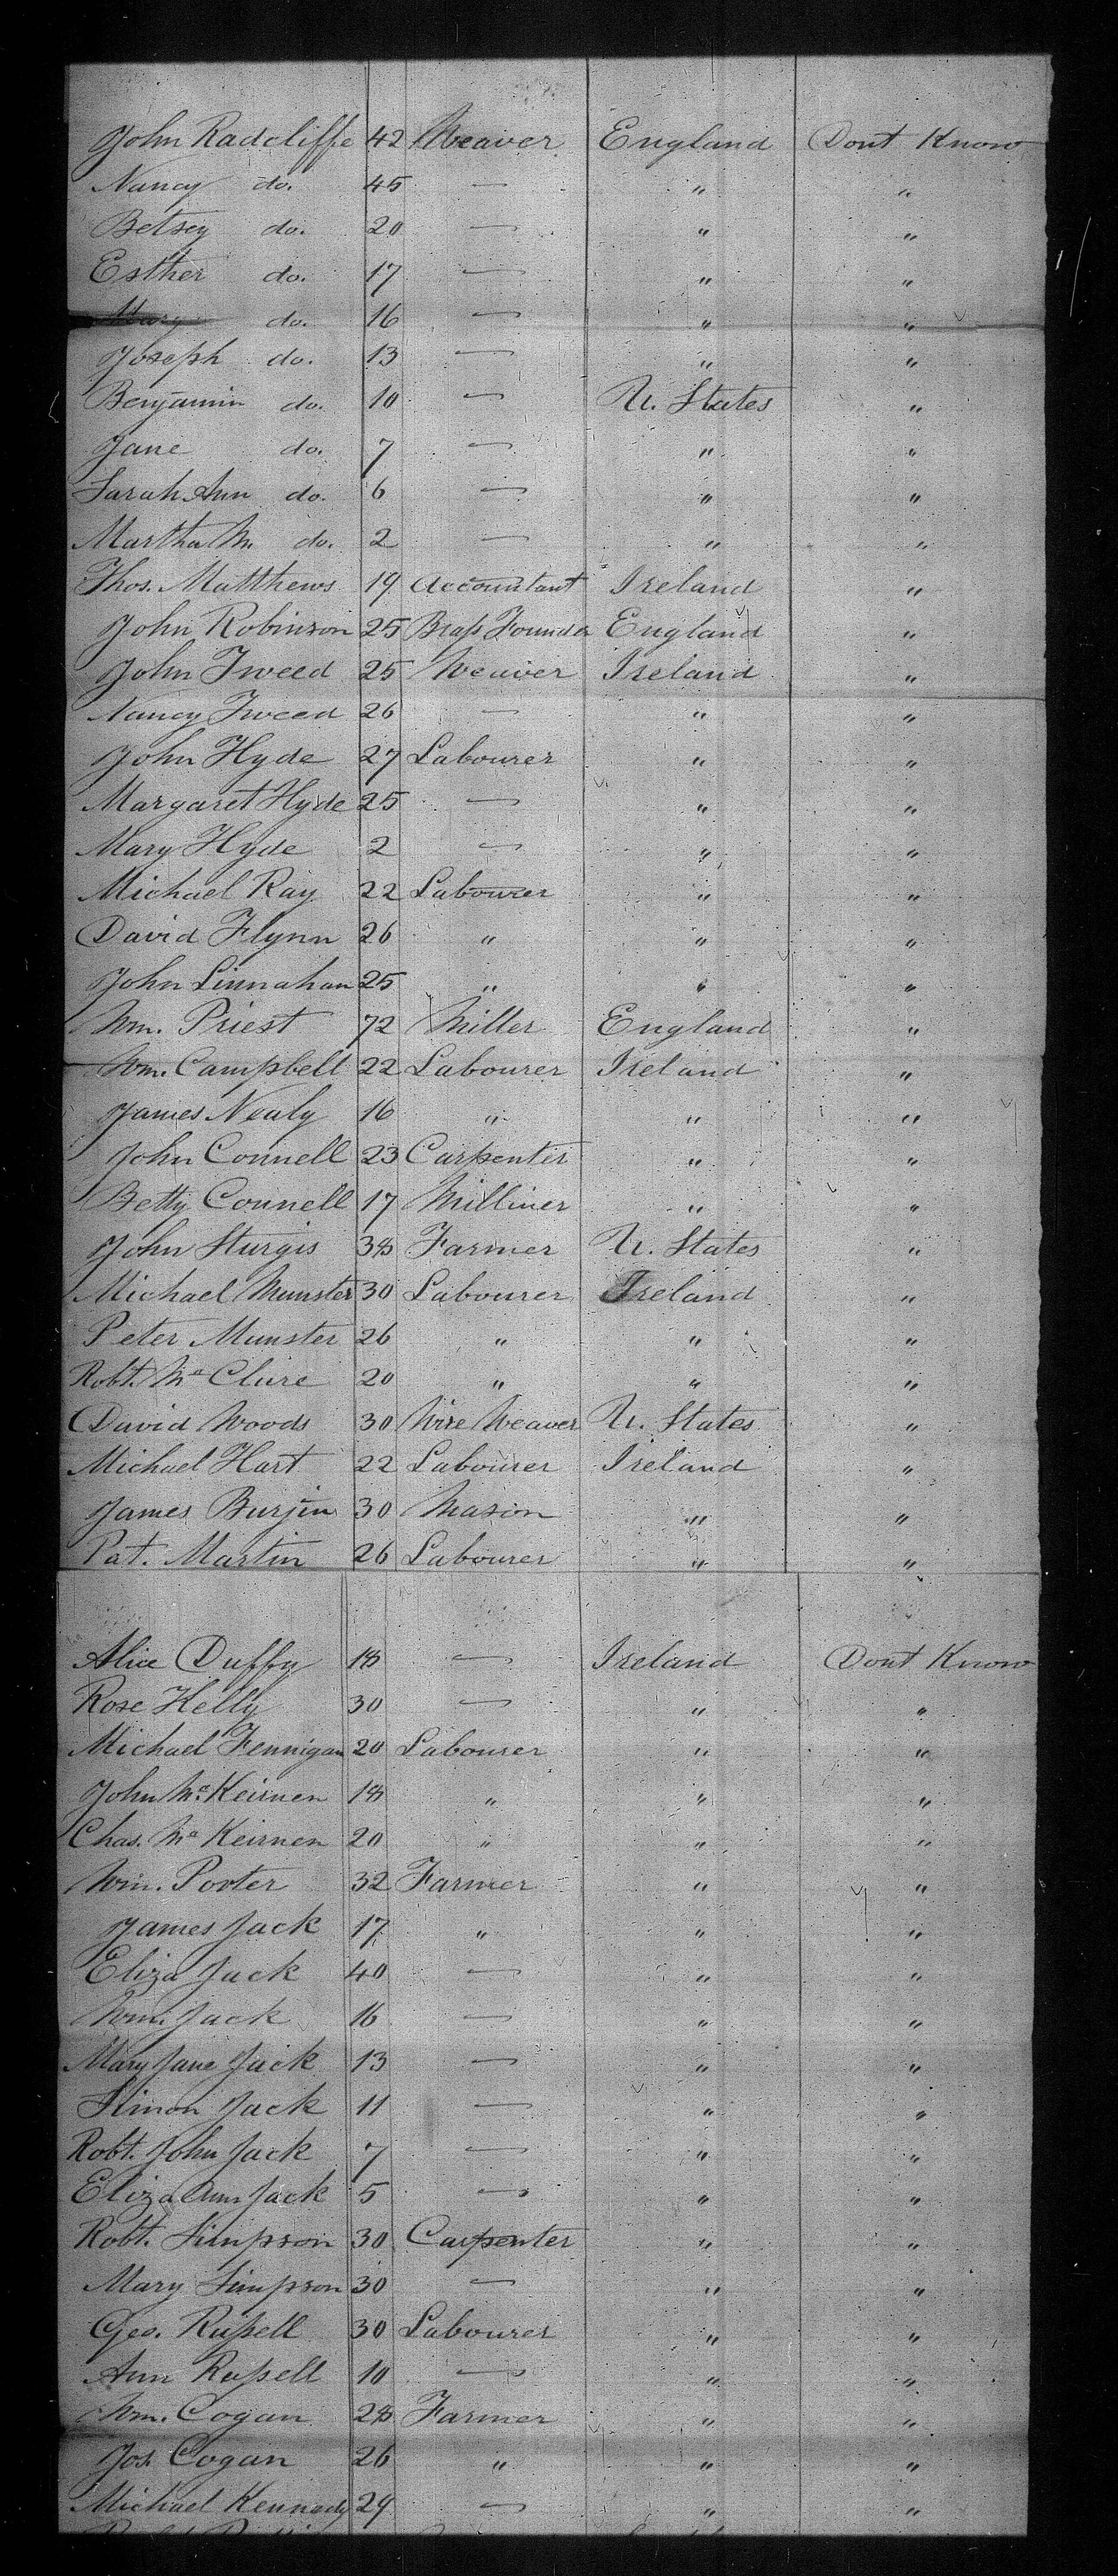 John Radcliffe 42 Weaver England Dont Know
Nancy do. 45 — " "
Betsey do. 20 — " "
Esther do. 17 — " "
Mary do. 16 — " "
Joseph do. 13 — " "
Benjamin do. 10 — U. States "
Jane do. 7 — " "
Sarah Ann do. 6 — " "
Martha M. do. 2 — " "
Thos. Matthews 19 Accountant Ireland "
John Robinson 25 Brass Founder England "
John Tweed 25 Weaver Ireland "
Nancy Tweed 26 — " "
John Hyde 27 Labourer " "
Margaret Hyde 25 — " "
Mary Hyde 2 — " "
Michael Ray 22 Labourer " "
David Flynn 26 " " "
John Linnahan 25 " " "
Wm. Priest 72 Miller England "
Wm. Campbell 22 Labourer Ireland "
James Nealy 16 " " "
John Connell 23 Carpenter " "
Betty Connell 17 Milliner " "
John Sturgis 38 Farmer U. States "
Michael Munster 30 Labourer Ireland "
Peter Munster 26 " " "
Robt. Mc Clure 20 " " "
David Woods 30 Wire Weaver U. States "
Michael Hart 22 Labourer Ireland "
James Burjin 30 Mason " "
Pat. Martin 26 Labourer " "
Alice Duffy 18 — Ireland Dont Know
Rose Kelly 30 — " "
Michael Fennigan 20 Labourer " "
John Mc Keirnen 18 " " "
Chas. Mc Keirnen 20 " " "
Wm. Porter 32 Farmer " "
James Jack 17 " " "
Eliza Jack 40 — " "
Wm. Jack 16 — " "
Mary Jane Jack 13 — " "
Simon Jack 11 — " "
Robt. John Jack 7 — " "
Eliza Ann Jack 5 — " "
Robt. Simpson 30 Carpenter " "
Mary Simpson 30 — " "
Geo. Russell 30 Labourer " "
Ann Russell 10 — " "
Wm. Cogan 28 Farmer " "
Jos. Cogan 26 " " "
Michael Kennady 29 — " "